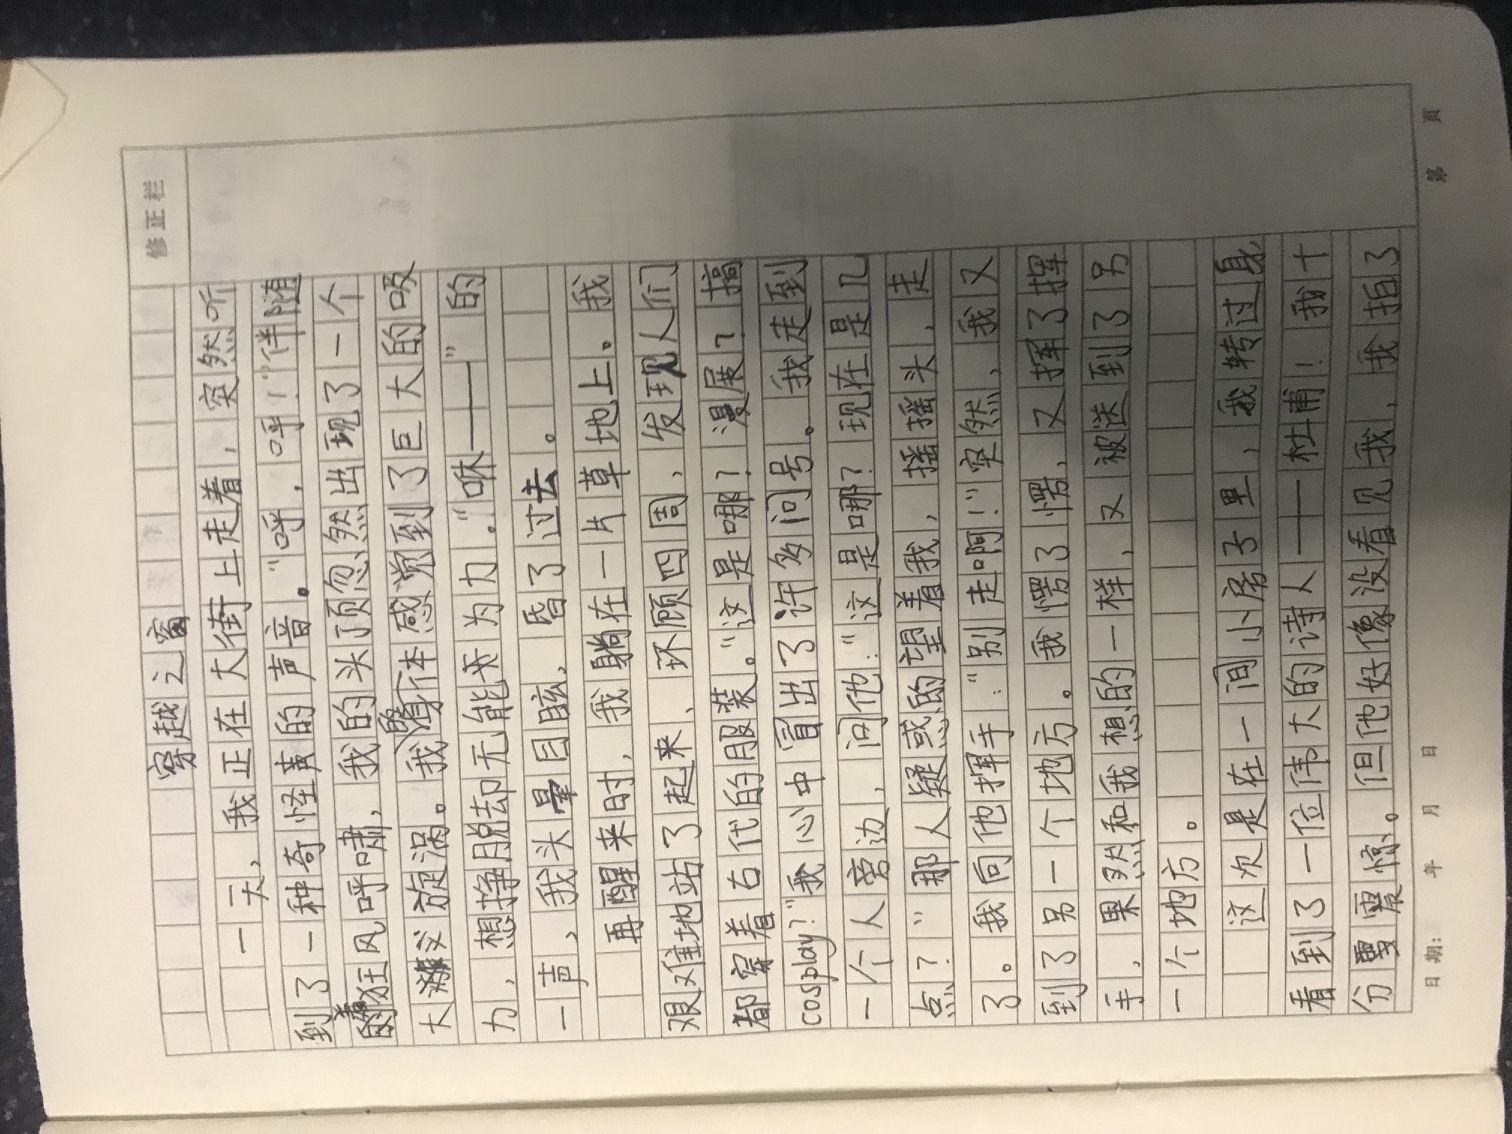 修正栏
穿越之窗
一天，我正在大街上走着，突然听
到了一种奇怪的声音。“呼，呼！”伴随
着狂风呼啸，我的头顶忽然出现了一个
大旋涡。我身体感觉到了巨大的吸
力，想挣脱却无能为力。“咻——”的
一声，我头晕目眩，昏了过去。
再醒来时，我躺在一片草地上。我
艰难地站了起来，环顾四周，发现人们
都穿着古代的服装。“这是哪？漫展？搞
cosplay？”我心中冒出了许多问号。我走到
一个人旁边，问他：“这是哪？现在是几
点？”那人疑惑的望着我，摇摇头，走
了。我向他挥手：“别走啊！”突然，我又
到了另一个地方。我愣了愣，又挥了挥
手，果然和我想的一样，又被送到了另
一个地方。
这次是在一间小房子里，我转过身
看到了一位伟大的诗人——杜甫！我十
分震惊。但他好像没看见我，我拍了
日期： 年 月 日
第 页